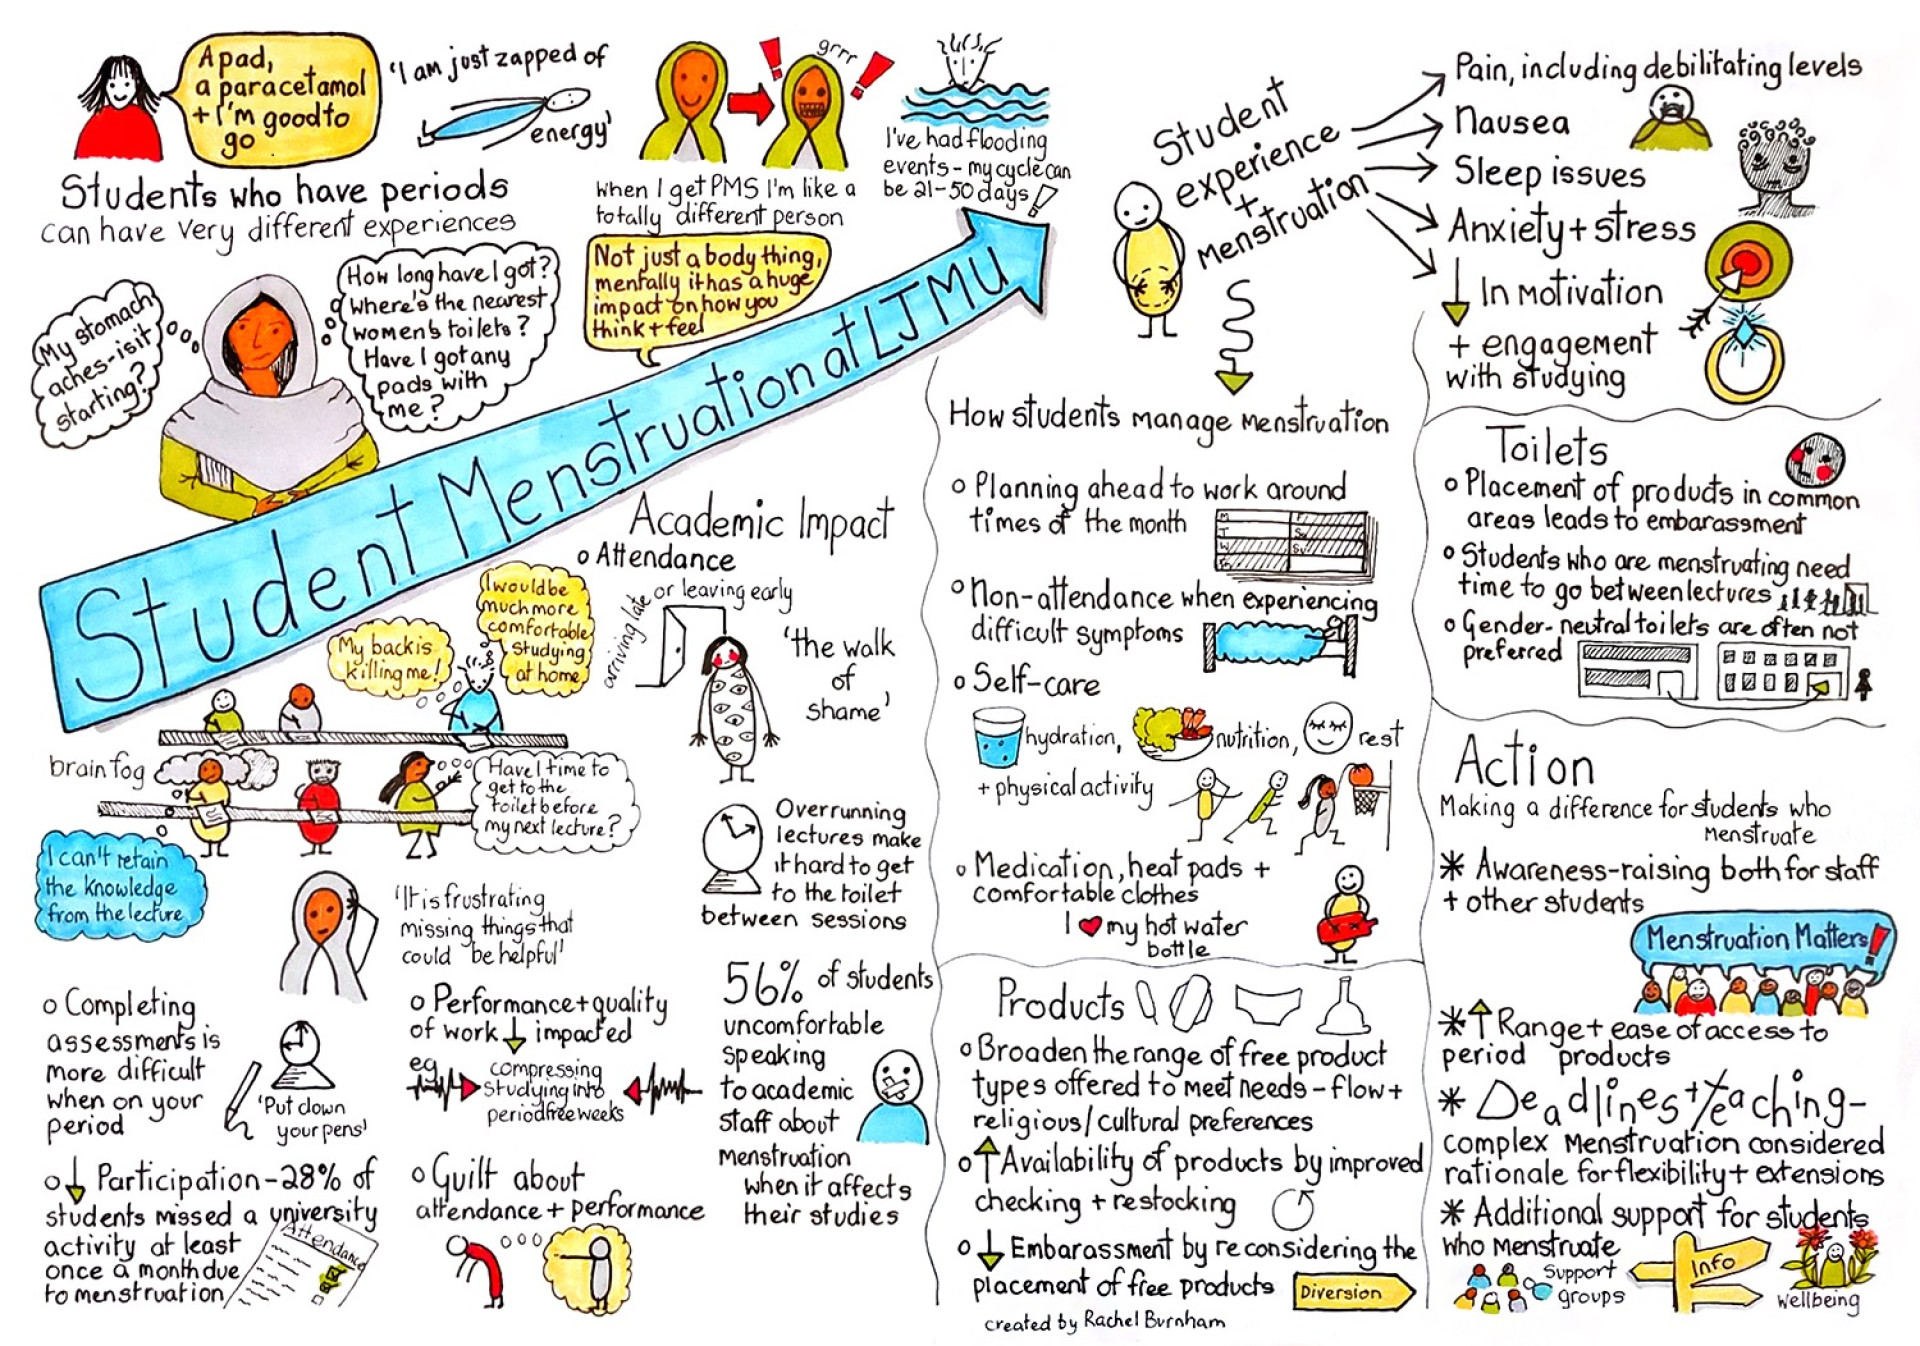 A pad,
a paracetamol
+ I'm good to
go
'I am just zapped of
energy'
grrr
When I get PMS I'm like a
totally different person
I've had flooding
events - my cycle can
be 21-50 days!
Students who have periods
can have very different experiences
My stomach
aches - is it
starting?
How long have I got?
Where's the nearest
women's toilets?
Have I got any
pads with
me?
Not just a body thing,
mentally it has a huge
impact on how you
think + feel
Student Menstruation at LJMU
Academic Impact
o Attendance
arriving late
or leaving early
'the walk
of
shame'
I would be
much more
comfortable
studying
at home
My back is
killing me!
brain fog
Have I time to
get to the
toilet before
my next lecture?
I can't retain
the knowledge
from the lecture
'It is frustrating
missing things that
could be helpful'
Overrunning
lectures make
it hard to get
to the toilet
between sessions
o Completing
assessments is
more difficult
when on your
period
'Put down
your pens'
o Performance + quality
of work ↓ impacted
eg
compressing
studying into
period free weeks
56% of students
uncomfortable
speaking
to academic
staff about
menstruation
when it affects
their studies
o ↓ Participation - 28% of
students missed a university
activity at least
once a month due
to menstruation
Attendance
o Guilt about
attendance + performance
Student
experience
+
menstruation
Pain, including debilitating levels
Nausea
Sleep issues
Anxiety + stress
↓ In motivation
+ engagement
with studying
How students manage menstruation
o Planning ahead to work around
times of the month
M
T
W
F
o Non-attendance when experiencing
difficult symptoms
o Self-care
hydration,
nutrition,
rest
+ physical activity
o Medication, heat pads +
comfortable clothes
I ♥ my hot water
bottle
Products
o Broaden the range of free product
types offered to meet needs - flow +
religious/cultural preferences
o ↑ Availability of products by improved
checking + restocking
o ↓ Embarassment by reconsidering the
placement of free products
Diversion
created by Rachel Burnham
Toilets
o Placement of products in common
areas leads to embarassment
o Students who are menstruating need
time to go between lectures
o Gender-neutral toilets are often not
preferred
Action
Making a difference for students who
menstruate
* Awareness-raising both for staff
+ other students
Menstruation Matters!
* ↑ Range + ease of access to
period products
* Deadlines + teaching -
complex menstruation considered
rationale for flexibility + extensions
* Additional support for students
who menstruate
Support
groups
Info
Wellbeing